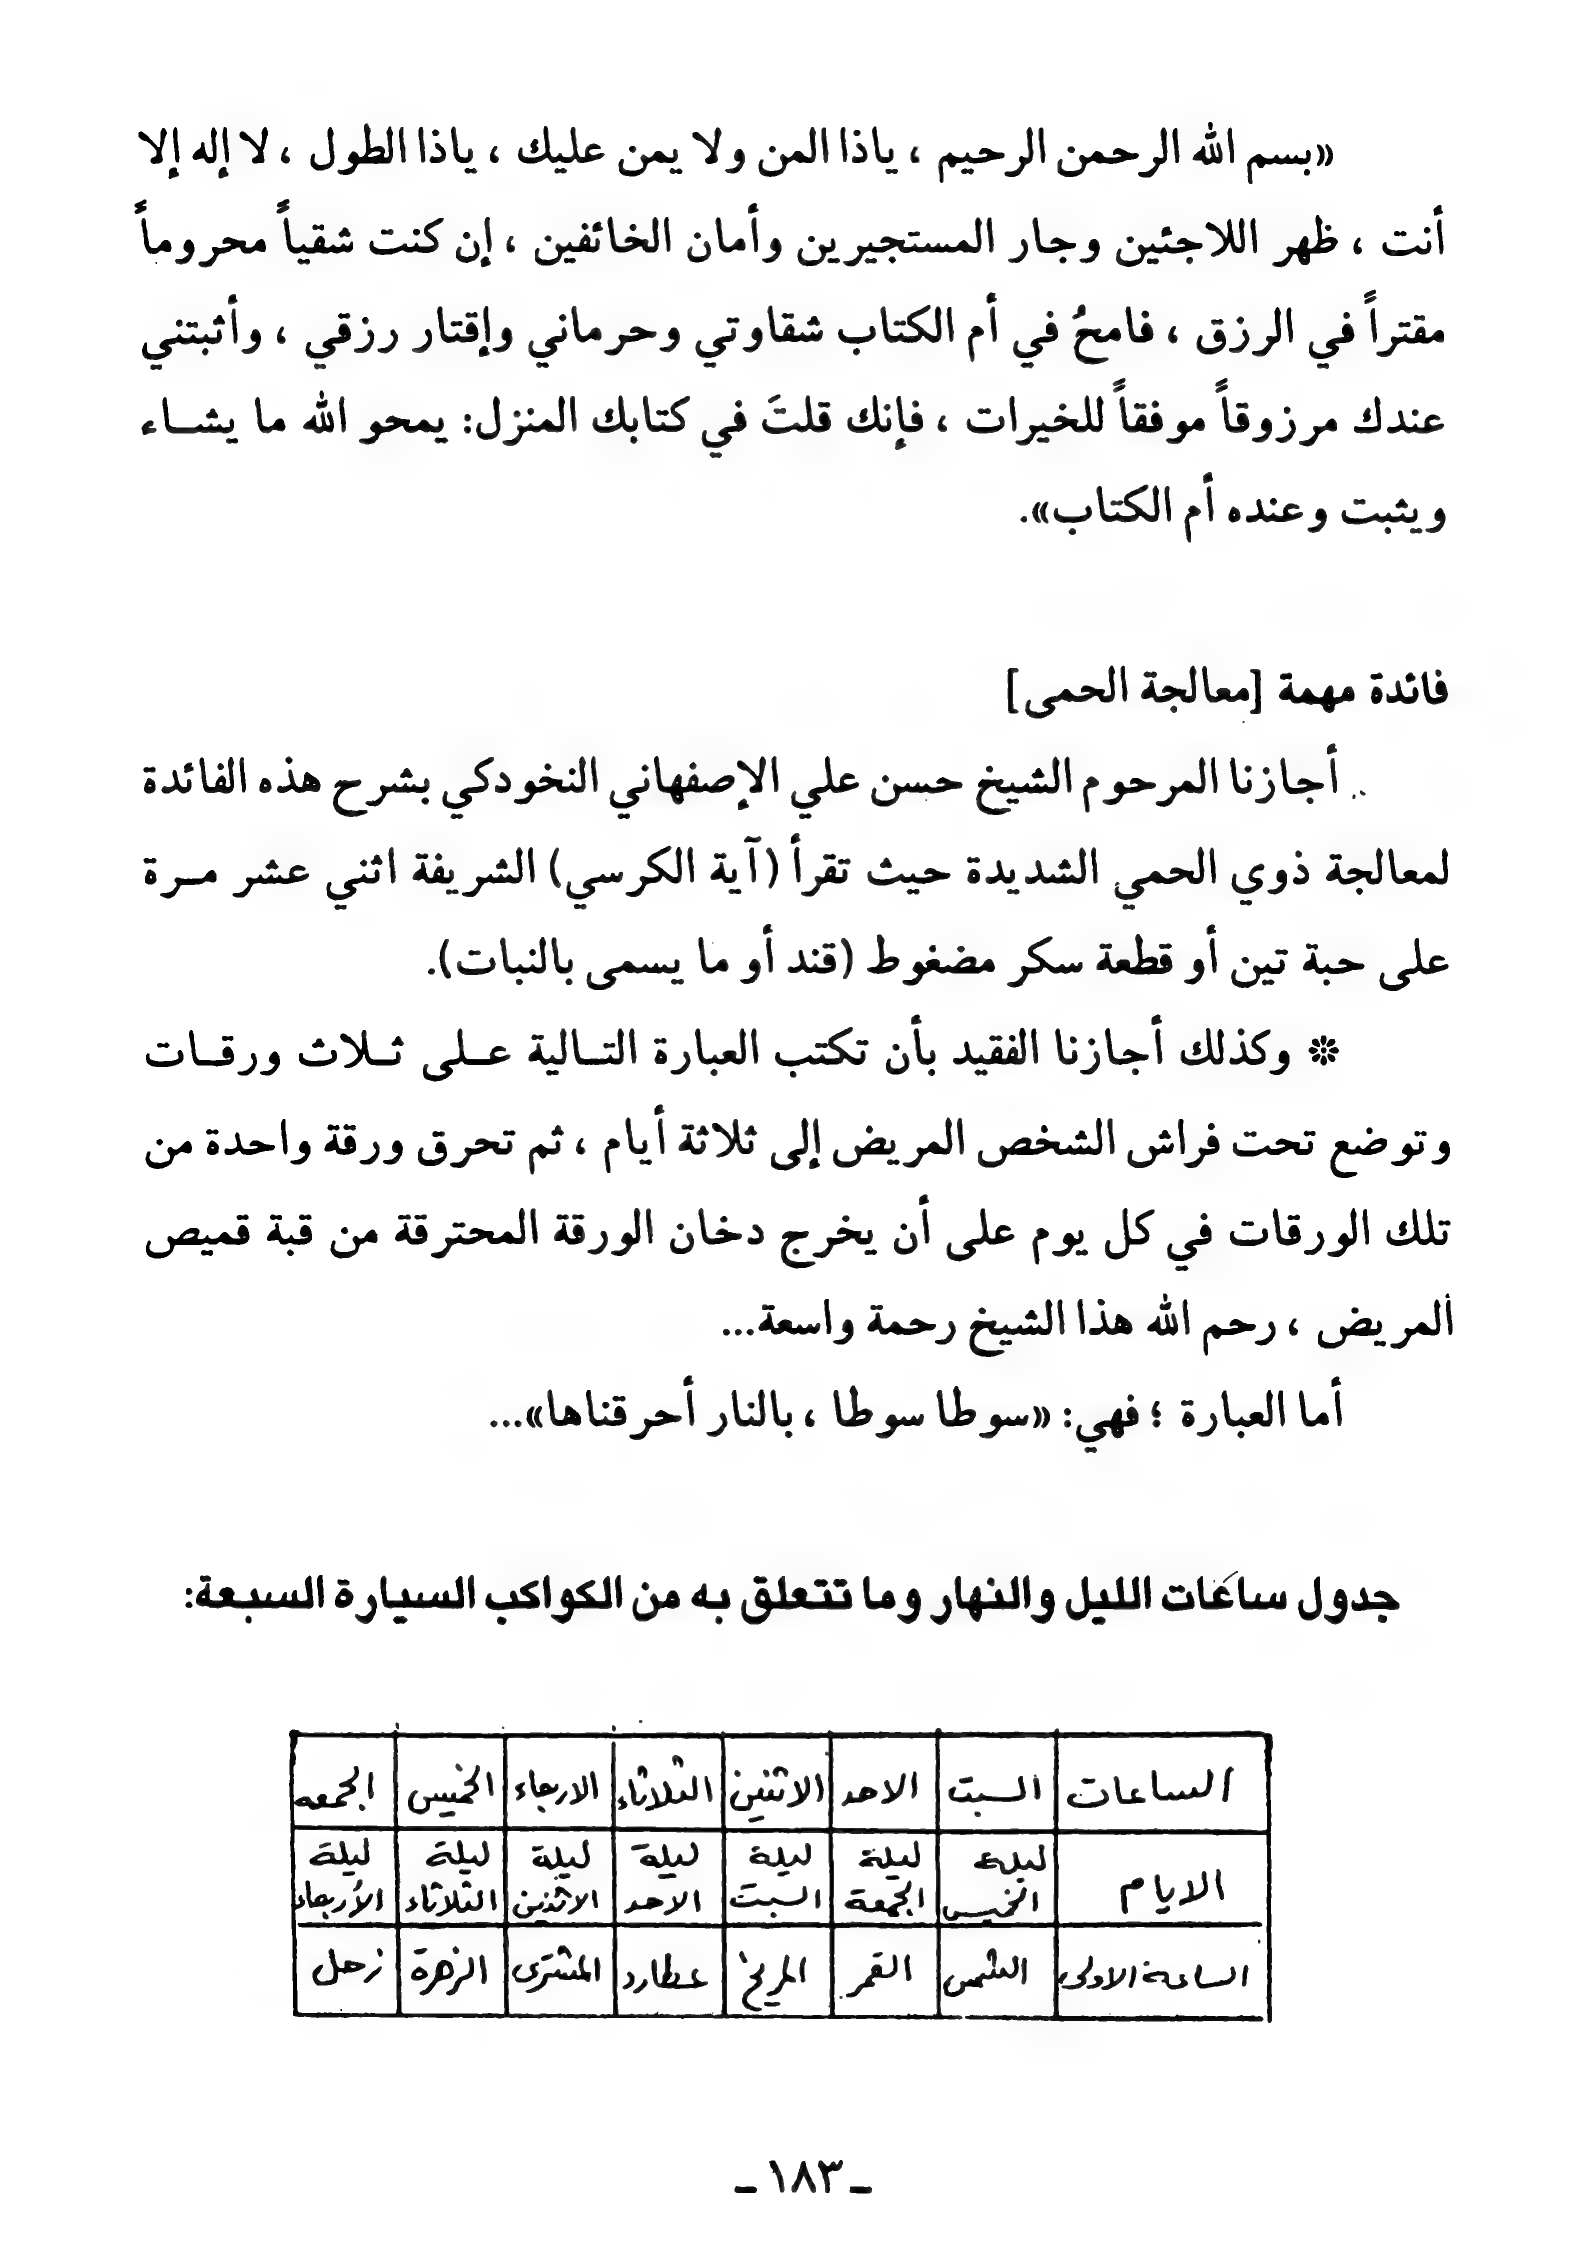 «بسم الله الرحمن الرحيم ، ياذا المن ولا يمن عليك ، ياذا الطول ، لا إله إلا
أنت ، ظهر اللاجئين وجار المستجيرين وأمان الخائفين ، إن كنت شقياً محروماً
مقتراً في الرزق ، فامحُ في أم الكتاب شقاوتي وحرماني وإقتار رزقي ، وأثبتني
عندك مرزوقاً موفقاً للخيرات ، فإنك قلتَ في كتابك المنزل: يمحو الله ما يشاء
ويثبت وعنده أم الكتاب».
فائدة مهمة [معالجة الحمى]
أجازنا المرحوم الشيخ حسن علي الإصفهاني النخودكي بشرح هذه الفائدة
لمعالجة ذوي الحمي الشديدة حيث تقرأ (آية الكرسي) الشريفة اثني عشر مرة
على حبة تين أو قطعة سكر مضغوط (قند أو ما يسمى بالنبات).
❊ وكذلك أجازنا الفقيد بأن تكتب العبارة التالية على ثلاث ورقات
وتوضع تحت فراش الشخص المريض إلى ثلاثة أيام ، ثم تحرق ورقة واحدة من
تلك الورقات في كل يوم على أن يخرج دخان الورقة المحترقة من قبة قميص
المريض ، رحم الله هذا الشيخ رحمة واسعة...
أما العبارة ؛ فهي: «سوطا سوطا ، بالنار أحرقناها»...
جدول ساعات الليل والنهار وما تتعلق به من الكواكب السيارة السبعة:
الساعات السبت الاحد الاثنين الثلاثاء الاربعاء الخميس الجمعه
الايام ليلة الخميس ليلة الجمعة ليلة السبت ليلة الاحد ليلة الاثنين ليلة الثلاثاء ليلة الأربعاء
الساعة الاولى الشمس القمر المريخ عطارد المشترى الزهرة زحل
ـ ١٨٣ ـ